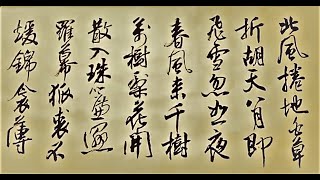 北風捲地白草
折胡天八月即
飛雪忽如一夜
春風来千樹
萬樹梨花開
散入珠簾濕
羅幕狐裘不
煖錦衾薄